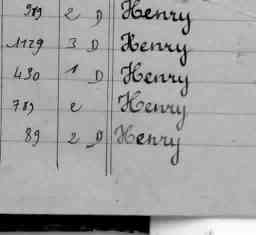 989 2 D Henry
1129 3 D Henry
430 1 D Henry
789 e Henry
89 2 D Henry